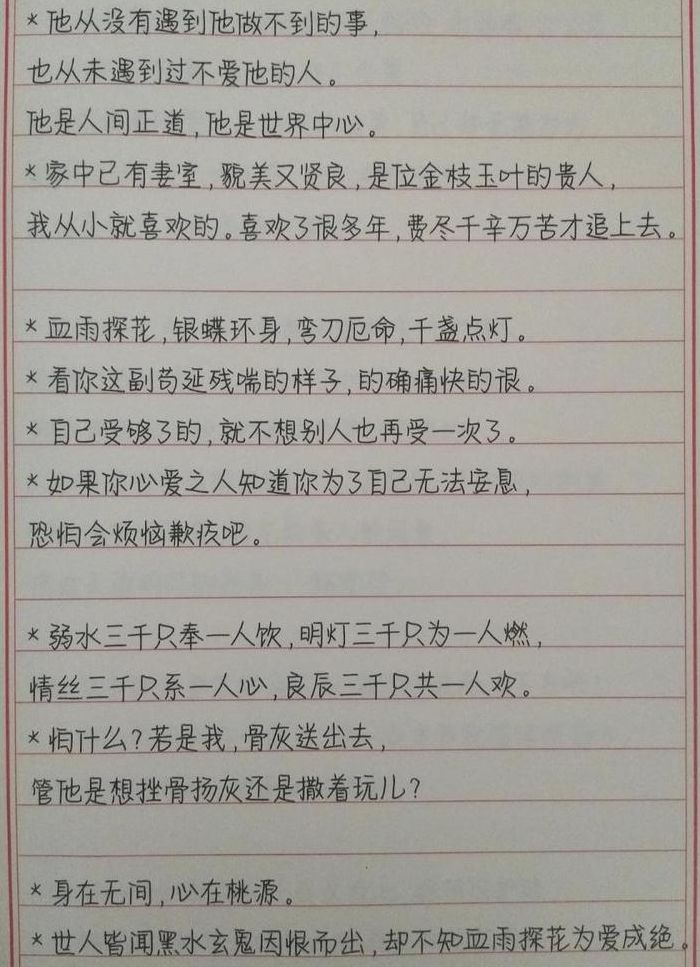 *他从没有遇到他做不到的事,
也从未遇到过不爱他的人。
他是人间正道,他是世界中心。
*家中已有妻室,貌美又贤良,是位金枝玉叶的贵人,
我从小就喜欢的。喜欢了很多年,费尽千辛万苦才追上去。
*血雨探花,银蝶环身,弯刀厄命,千盏点灯。
*看你这副苟延残喘的样子,的确痛快的很。
*自己受够了的,就不想别人也再受一次了。
*如果你心爱之人知道你为了自己无法安息,
恐怕会烦恼歉疚吧。
*弱水三千只奉一人饮,明灯三千只为一人燃,
情丝三千只系一人心,良辰三千只共一人欢。
*怕什么?若是我,骨灰送出去,
管他是想挫骨扬灰还是撒着玩儿?
*身在无间,心在桃源。
*世人皆闻黑水玄鬼因恨而出,却不知血雨探花为爱成绝。